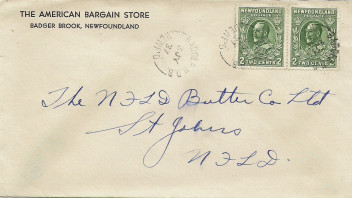 THE AMERICAN BARGAIN STORE
BADGER BROOK, NEWFOUNDLAND
NEWFOUNDLAND NEWFOUNDLAND
2 TWO CENTS 2 2 TWO CENTS 2
The NFLD Butter Co Ltd
St Johns
NFLD.